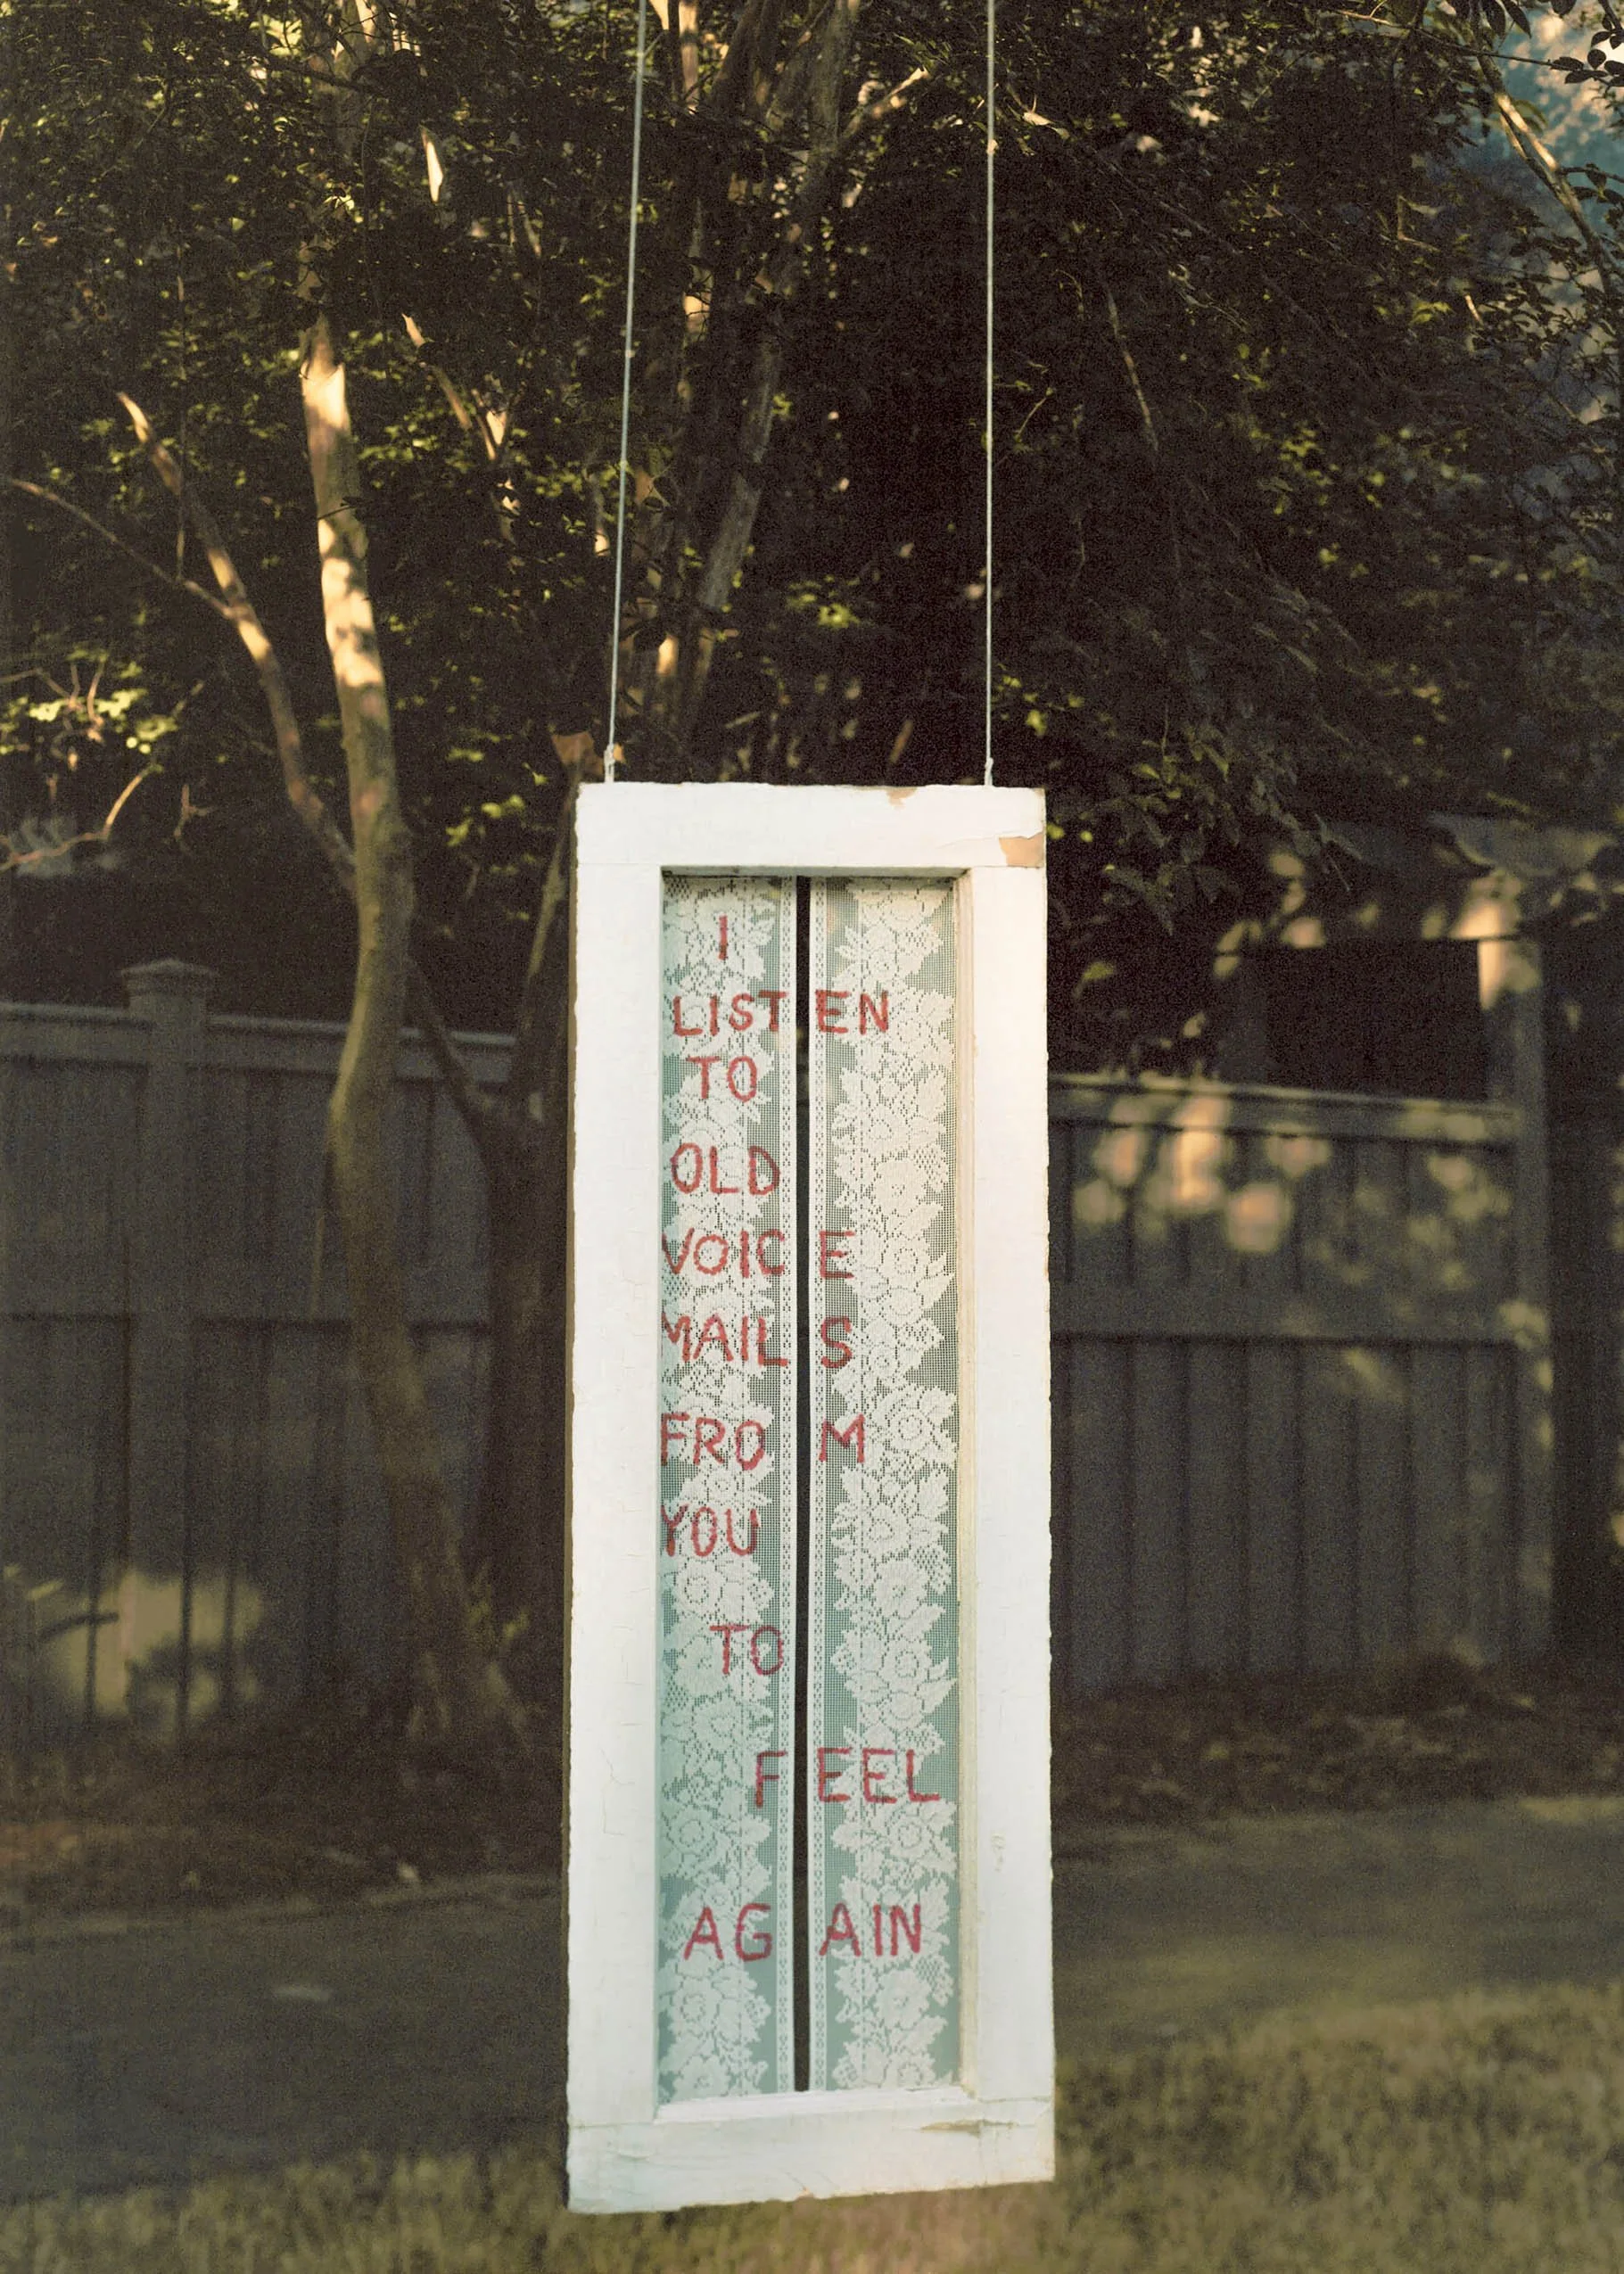 I
LISTEN
TO
OLD
VOICE
MAILS
FROM
YOU
TO
FEEL
AGAIN